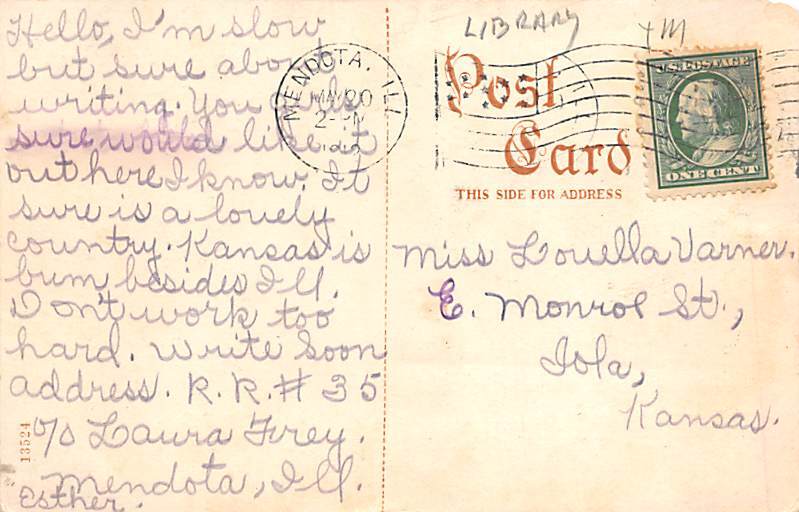 Hello, I'm slow
but sure about
writing. You
sure would like it
out here I know. It
sure is a lovely
country. Kansas is
bum besides Ill.
Dont work too
hard. Write soon
address. R. R. # 35
c/o Laura Frey.
Mendota, Ill.
Esther.
13524
MENDOTA, ILL
LIBRARY
Post
Card
THIS SIDE FOR ADDRESS
U.S. POSTAGE
ONE CENT
Miss Louella Varner.
E. Monroe St.,
Iola,
Kansas.